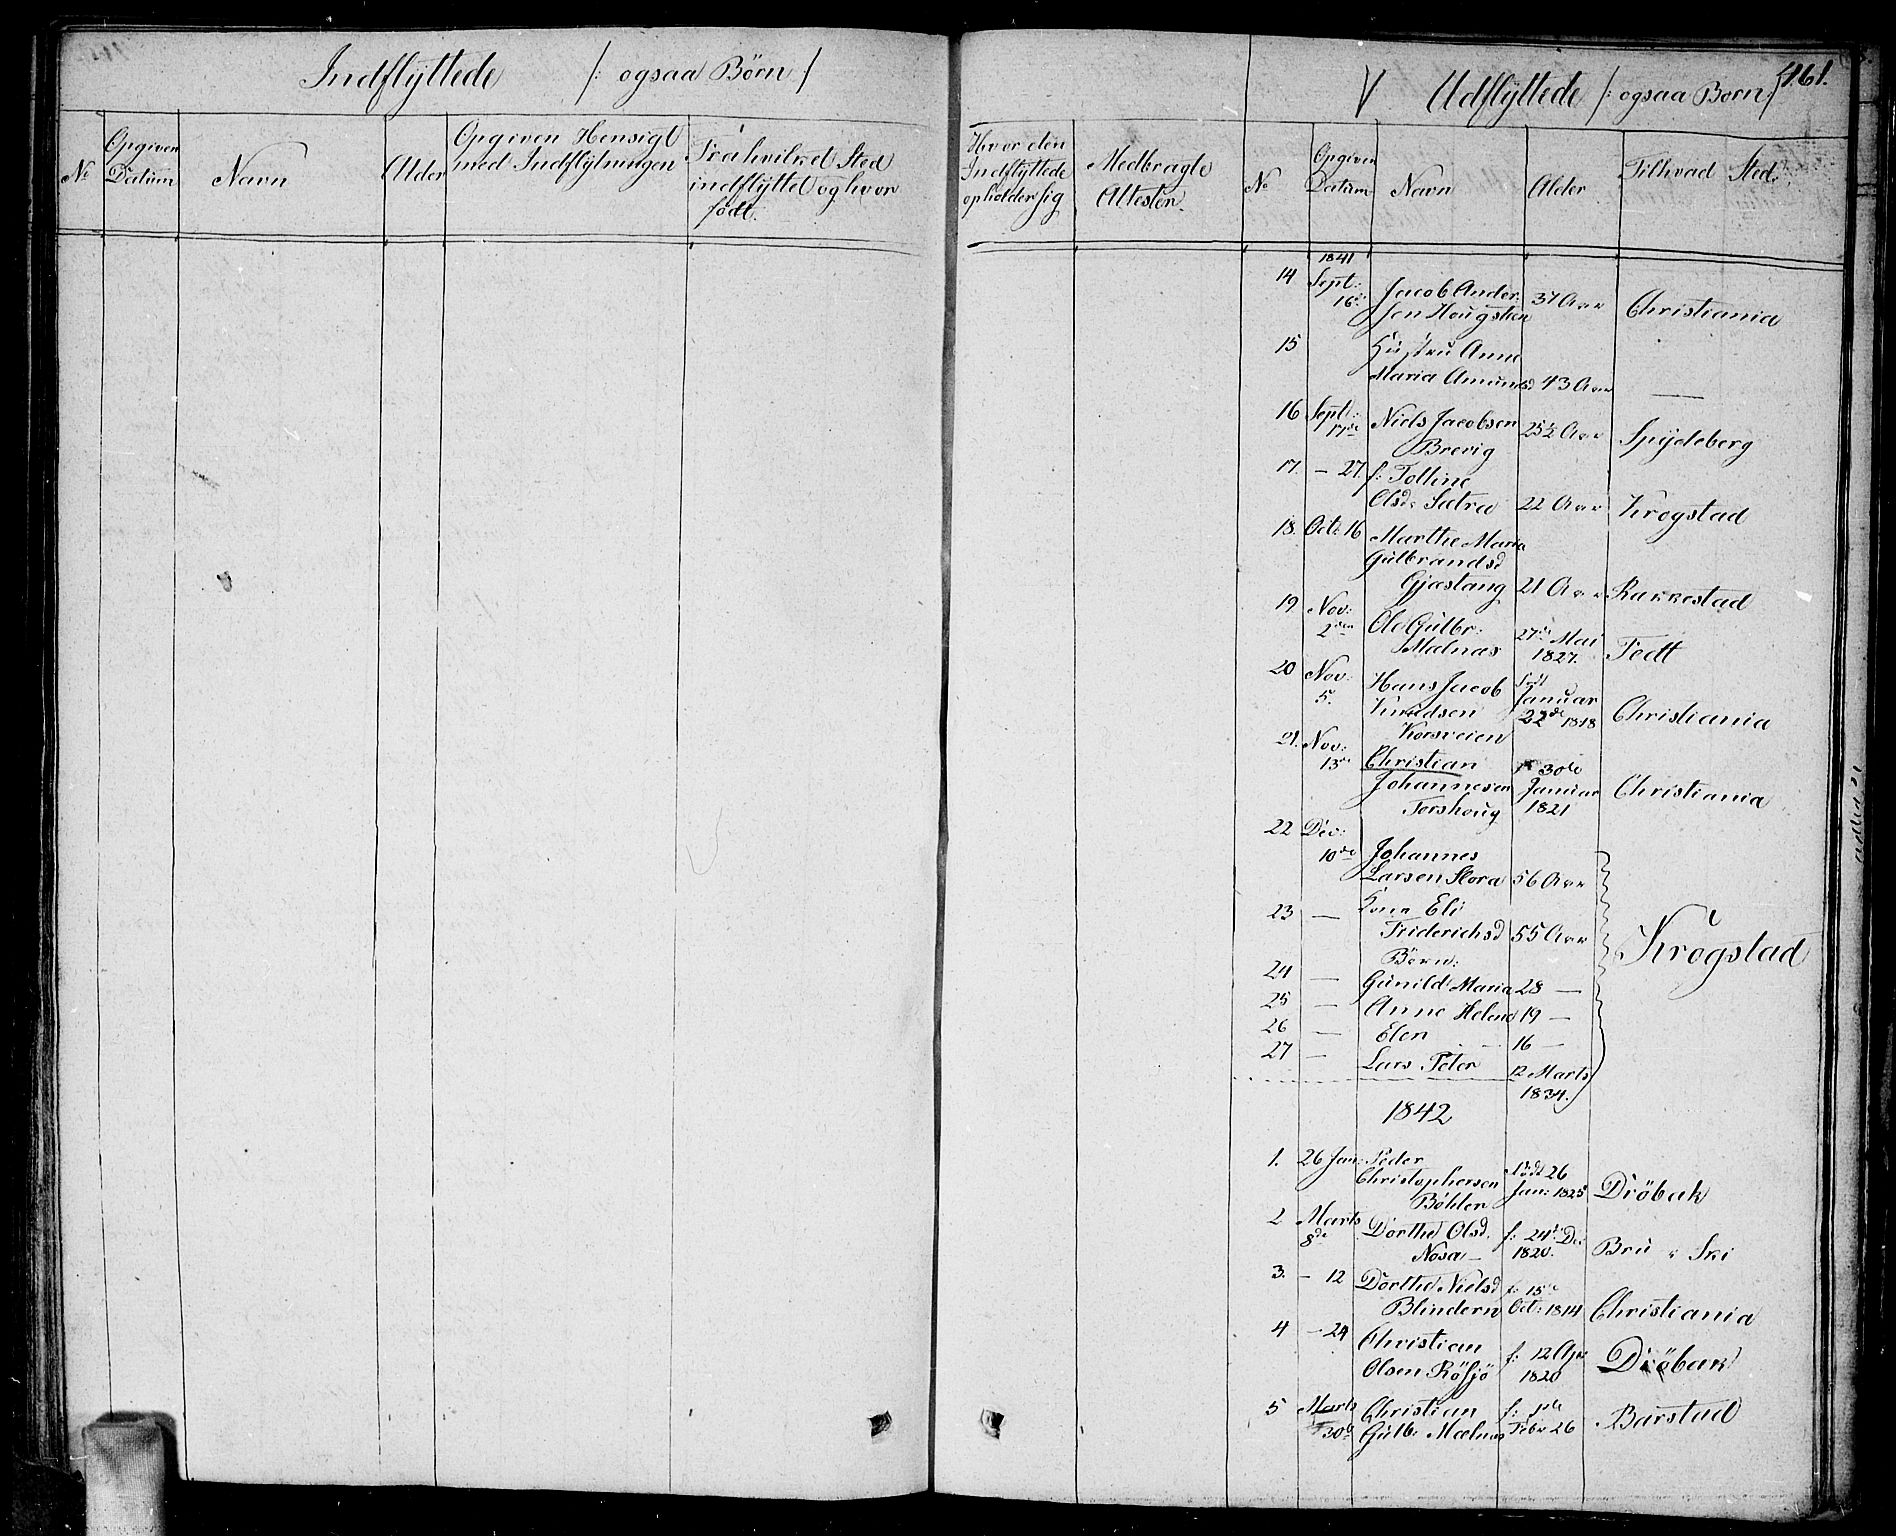 Indflyttede /: ogsaa Börn /
No
Opgiven Datum
Navn
Alder
Opgiven Hensigt med Indflytningen
Fra hvilket Sted indflyttet og hvor født.
Hvor den Indflyttede opholder sig
Medbragte Attester.
461.
V Udflyttede /: ogsaa Børn /
No
Opgiven Datum
Navn
Alder
Til hvad Sted.
1841
14 Sept: Jacob Ander- 37 Aar Christiania
16de sen Hougsteen
15 Hustru Anne
Maria Amundsd 43 Aar —
16 Sept: Niels Jacobsen 25½ Aar Spydeberg
17de Brevig
17. — 27. f: Tolline
Olsd: Sætra 22 Aar Krogstad
18. Oct: 16 Marthe Maria
Gulbrandsd
Gjæstang 21 Aar Rakkestad
19 Nov: Ole Gulbr: 27de Mai
2den Malnæs 1827. Fedt
20 Nov: Hans Jacob Født Januar
5. Knudsen 22de 1818 Christiania
Korsveien
21. Nov: Christian f: 30te
13de Johannesen Januar Christiania
Torshoug 1821
22 Dec:
10de Johannes
Larsen Flora 56 Aar
23 — Kone Eli
Friderichsd 55 Aar Krogstad
Børn:
24 — Gunild Maria 28 —
25 — Anne Helene 19 —
26 — Elen 16 —
27 — Lars Peter 12 Marts
1834.
1842
1. 26 Jan: Peder Født 26
Christophersen Jan: 1825 Dröbak
Böhler
2 Marts Dorthe Olsd. f: 24de Dec
8de Nosa — 1820. Bru i Ski
3. — 12 Dorthe Nielsd f: 15de
Blindern Oct: 1814 Christiania
4 — 24 Christian f: 12 Apr
Olsen Rösjö 1820 Dröbak
5 Marts Christian f: 1ste
30de Gulb: Mælnæs Febr 26 Barstad